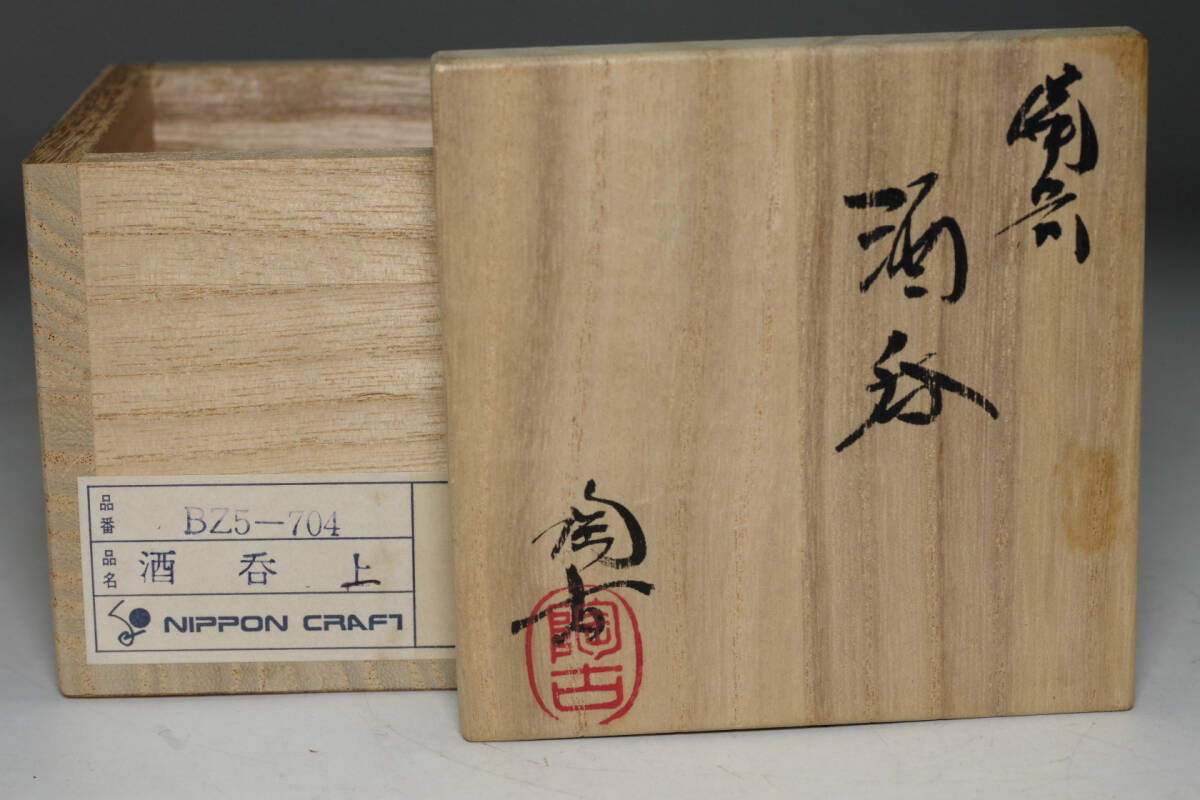 備前
酒呑
陶古
陶古
品番 BZ5-704
品名 酒呑 上
NIPPON CRAFT